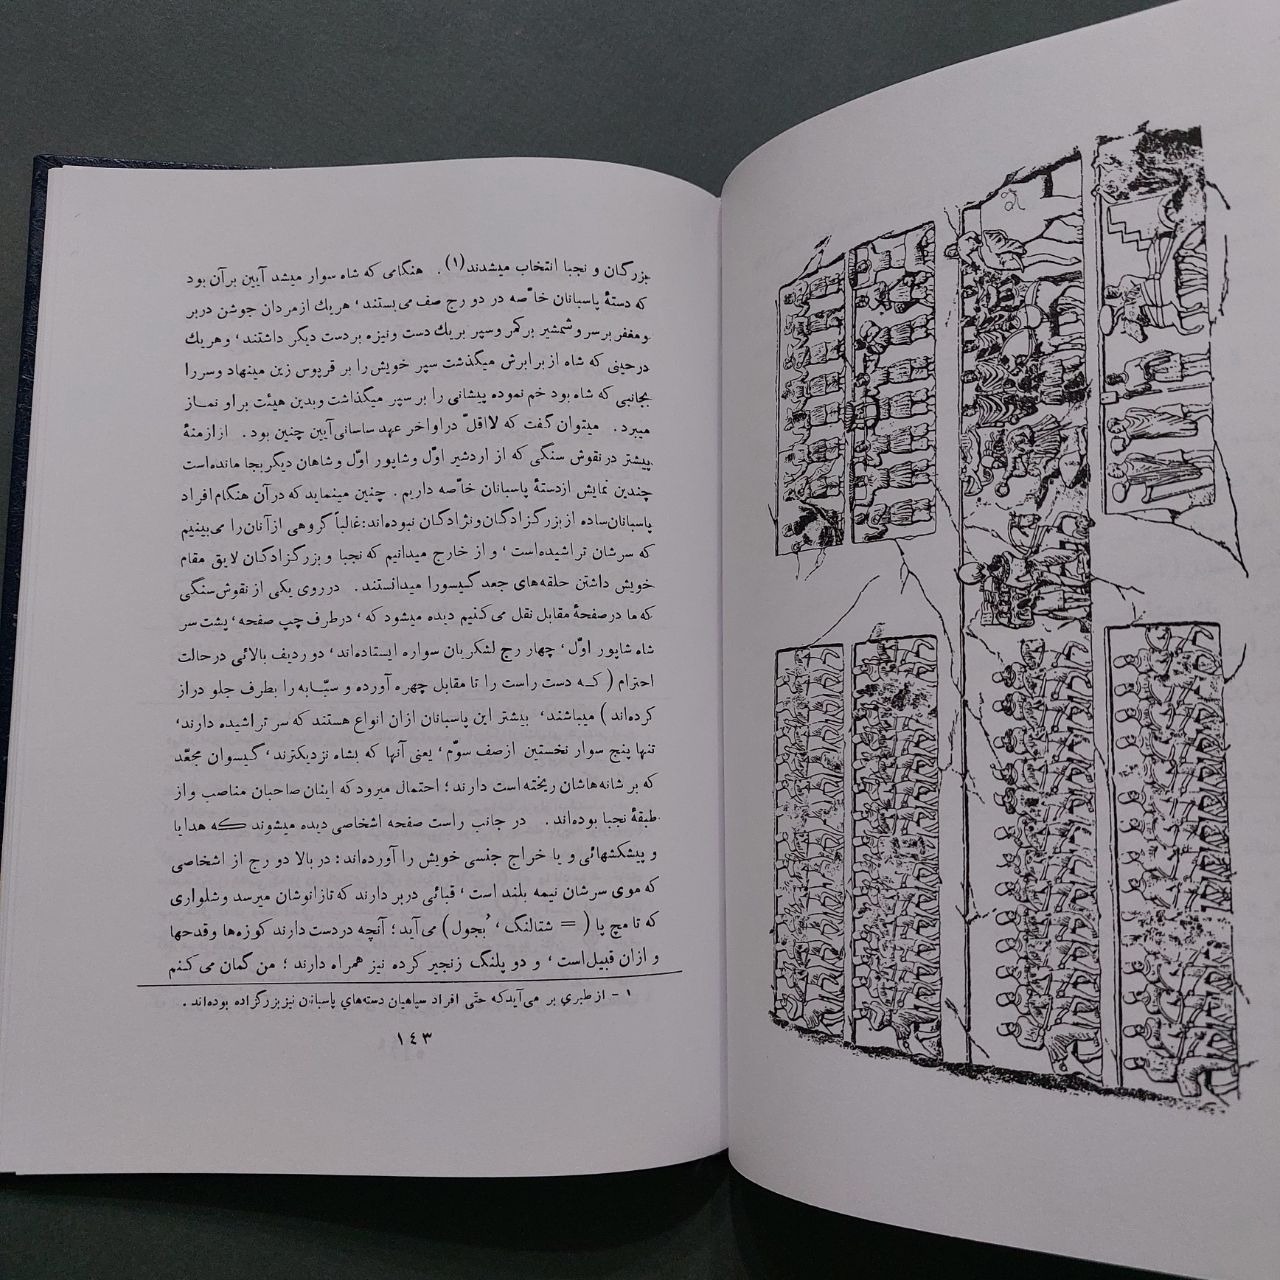 بزرگان و نجبا انتخاب میشدند(۱). هنگامی که شاه سوار میشد آیین بر آن بود
که دستهٔ پاسبانان خاصّه در دو رج صف می‌بستند، هریك از مردان جوشن در بر
و مغفر بر سر و شمشیر بر کمر و سپر بر یك دست و نیزه بر دست دیگر داشتند، و هریك
در حینی که شاه از برابرش میگذشت سپر خویش را بر قرپوس زین مینهاد و سر را
بجانبی که شاه بود خم نموده پیشانی را بر سپر میگذاشت و بدین هیئت بر او نماز
میبرد. میتوان گفت که لااقلّ در اواخر عهد ساسانی آیین چنین بود. از ازمنهٔ
پیشتر در نقوش سنگی که از اردشیر اوّل و شاپور اوّل و شاهان دیگر بجا مانده‌است
چندین نمایش از دستهٔ پاسبانان خاصّه داریم. چنین مینماید که در آن هنگام افراد
پاسبانان ساده از بزرگزادگان و نژادگان نبوده‌اند: غالباً گروهی از آنان را می‌بینیم
که سرشان تراشیده‌است، و از خارج میدانیم که نجبا و بزرگزادگان لایق مقام
خویش داشتن حلقه‌های جعد گیسو را میدانستند. در روی یکی از نقوش سنگی
که ما در صفحهٔ مقابل نقل می‌کنیم دیده میشود که، در طرف چپ صفحه، پشت سر
شاه شاپور اوّل، چهار رج لشکریان سواره ایستاده‌اند، دو ردیف بالائی در حالت
احترام (که دست راست را تا مقابل چهره آورده و سبّابه را بطرف جلو دراز
کرده‌اند) میباشند، بیشتر این پاسبانان ازان انواع هستند که سر تراشیده دارند،
تنها پنج سوار نخستین از صف سوّم، یعنی آنها که بشاه نزدیکترند، گیسوان مجعّد
که بر شانه‌هاشان ریخته است دارند؛ احتمال میرود که اینان صاحبان مناصب و از
طبقهٔ نجبا بوده‌اند. در جانب راست صفحه اشخاصی دیده میشوند که هدایا
و پیشکشهائی و یا خراج جنسی خویش را آورده‌اند: در بالا دو رج از اشخاصی
که موی سرشان نیمه بلند است، قبائی در بر دارند که تا زانوشان میرسد و شلواری
که تا مچ پا (= شتالنگ، بُجول) می‌آید؛ آنچه در دست دارند کوزه‌ها و قدحها
و ازان قبیل‌است، و دو پلنگ زنجیر کرده نیز همراه دارند؛ من گمان می‌کنم
۱ - از طبری بر می‌آید که حتّی افراد سپاهیان دسته‌های پاسبانان نیز بزرگزاده بوده‌اند.
۱۴۳